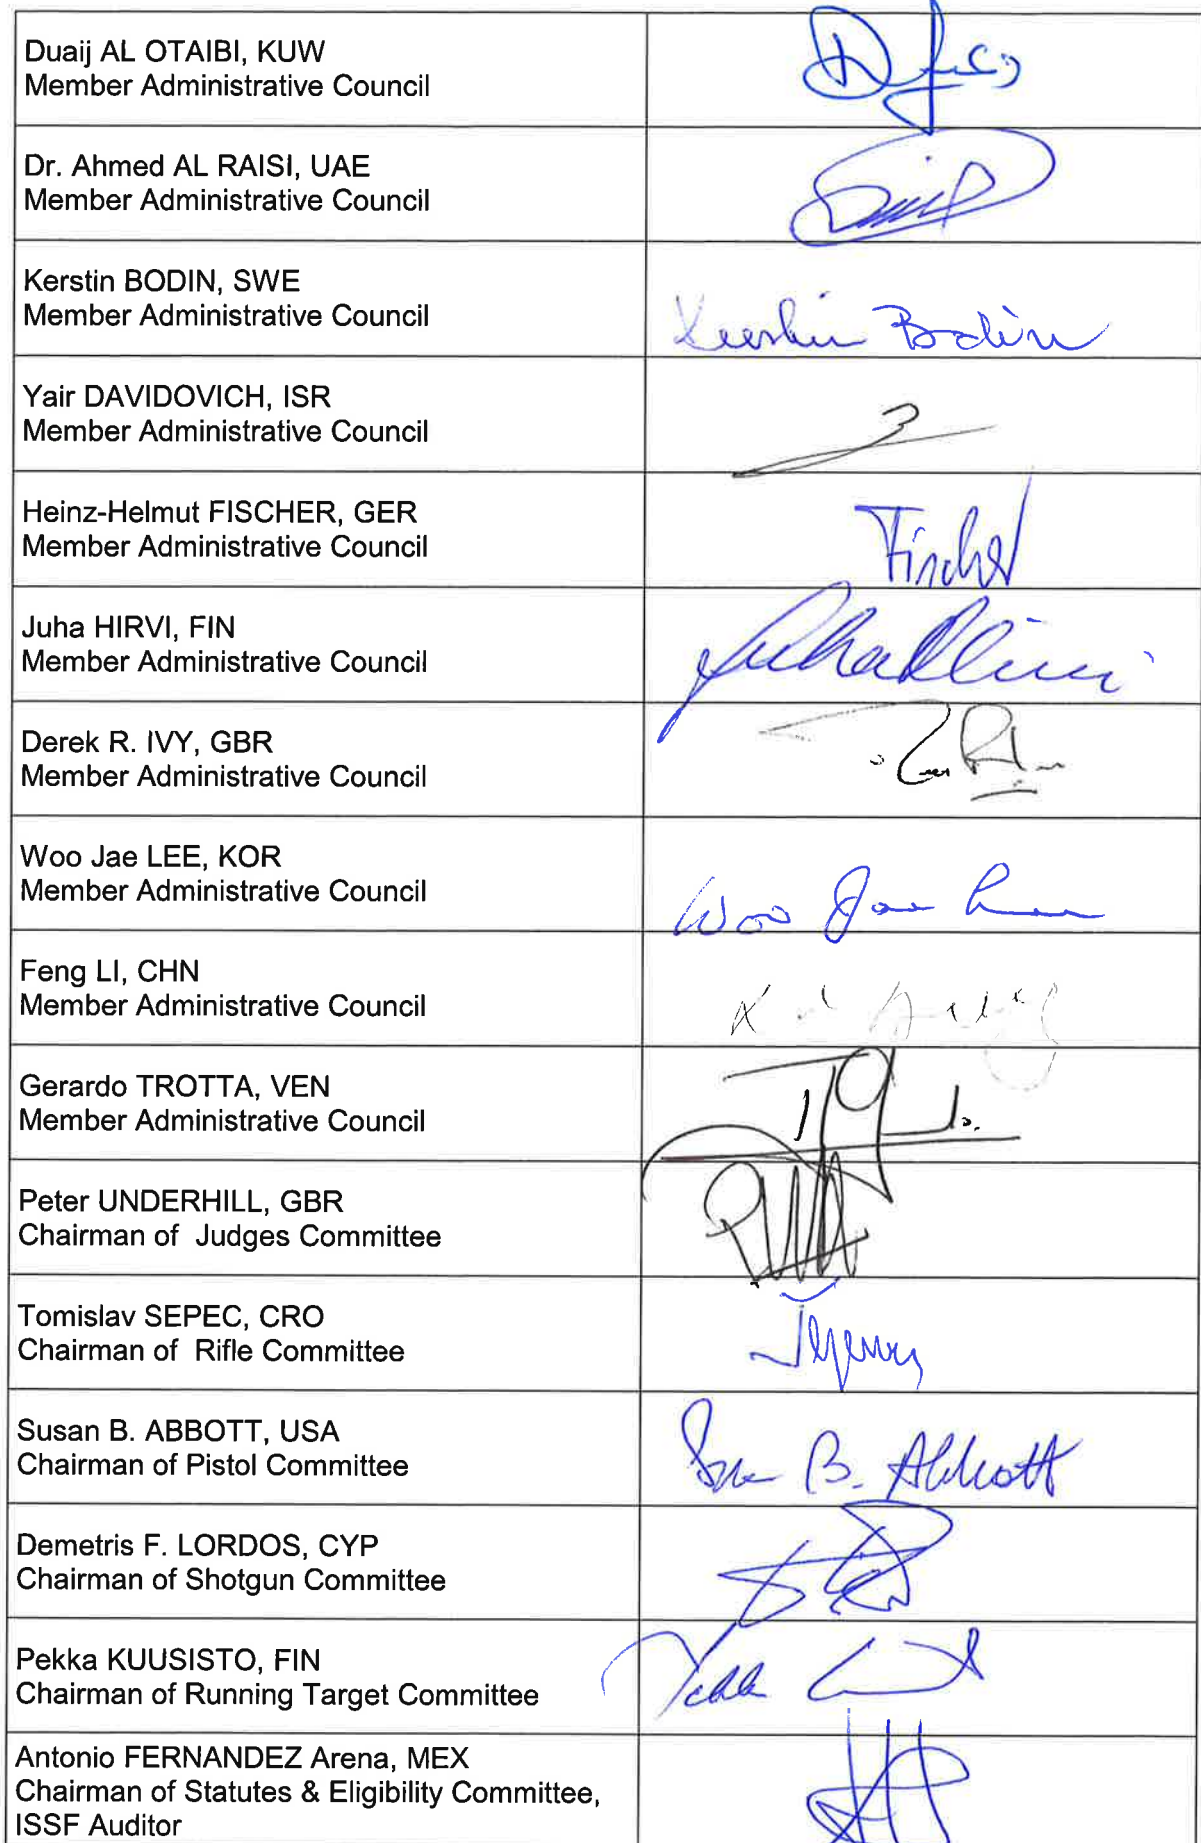 Duaij AL OTAIBI, KUW
Member Administrative Council
Dr. Ahmed AL RAISI, UAE
Member Administrative Council
Kerstin BODIN, SWE
Member Administrative Council
Kerstin Bodin
Yair DAVIDOVICH, ISR
Member Administrative Council
Heinz-Helmut FISCHER, GER
Member Administrative Council
Fischer
Juha HIRVI, FIN
Member Administrative Council
Juha Hirvi
Derek R. IVY, GBR
Member Administrative Council
Woo Jae LEE, KOR
Member Administrative Council
Woo Jae Lee
Feng LI, CHN
Member Administrative Council
Gerardo TROTTA, VEN
Member Administrative Council
Peter UNDERHILL, GBR
Chairman of  Judges Committee
Tomislav SEPEC, CRO
Chairman of  Rifle Committee
Susan B. ABBOTT, USA
Chairman of Pistol Committee
B. Abbott
Demetris F. LORDOS, CYP
Chairman of Shotgun Committee
Pekka KUUSISTO, FIN
Chairman of Running Target Committee
Pekka
Antonio FERNANDEZ Arena, MEX
Chairman of Statutes & Eligibility Committee,
ISSF Auditor